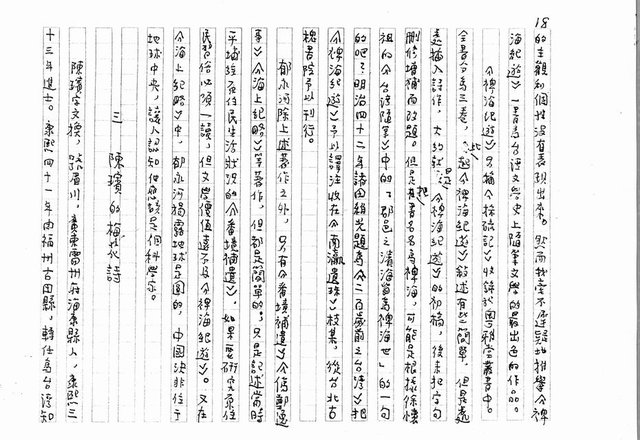 18
的主觀和個性沒有表現出來。然而我毫不遲疑地推舉《裨
海紀遊》一書為台灣文學史上隨筆文學的最出色的作品。
《裨海紀遊》另稱《採硫記》，收錄於《雅堂叢書》中。
全書分為三卷，此《裨海紀遊》敘述有些簡單，但是處
處插入詩作，大約就是《裨海紀遊》的初稿，後來把字句
刪修增補而改題。但是把書名為裨海，可能是根據徐懷
祖的《台灣隨筆》中的「即邑之清海當為裨海也」的一句
的吧？明治四十二年諸田維光題為《二百歲前之台灣》把
《裨海紀遊》予以譯注收在《南瀛遺珠》枝集，從台北古
梓書院予以刊行。
郁永河除上述著作之外，另有《番境補遺》《偽鄭逸
事》《海上紀略》等著作，但都是簡單的。只是記述當時
平埔族原住民生活狀況的《番境補遺》，如果要研究原住
民習俗必須一讀，但文學價值遠不及《裨海紀遊》。又在
《海上紀略》中，郁永河揭露地球是圓的，中國決非位于
地球中央，讓人認知他應該是個科學家。
三 陳璸的梅花詩
陳璸字文煥，號眉川，廣東雷州府海康縣人，康熙三
十三年進士。康熙四十一年由福州古田縣，轉任為台灣知